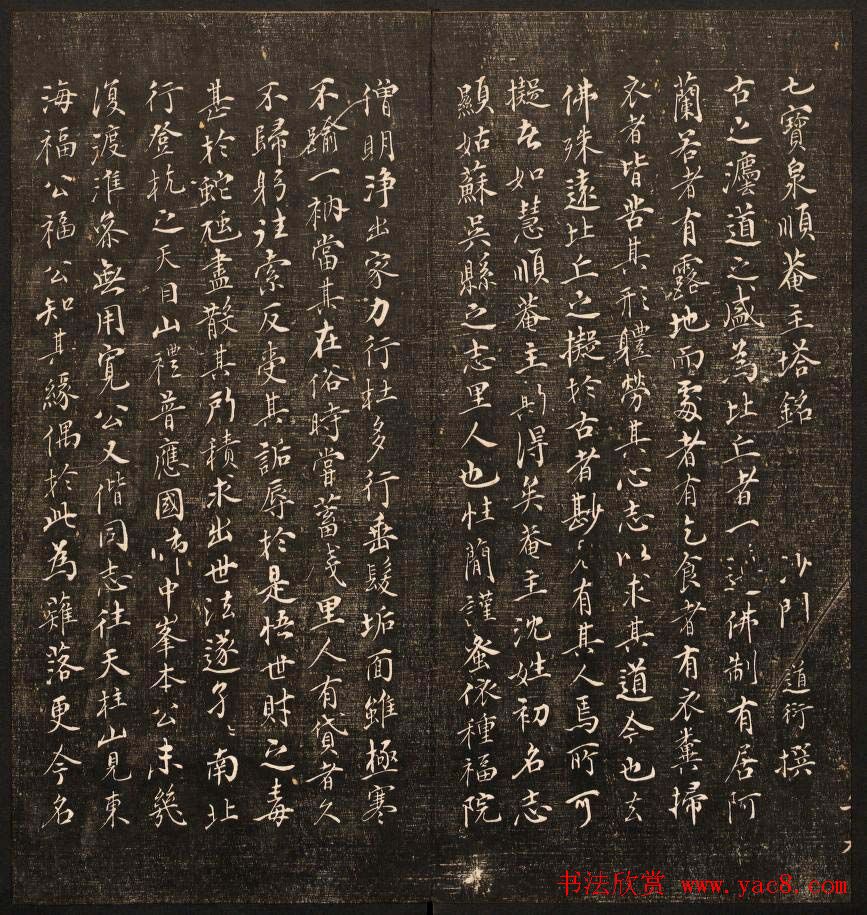 七寶泉順菴主塔銘 沙門 道衍撰
古之灋道之盛為比丘者一遵佛制有居阿
蘭若者有露地而處者有乞食者有衣糞掃
衣者皆苦其形軆勞其心志以求其道今也去
佛殊遠比丘之擬於古者尠見有其人焉所可
擬者如慧順菴主斯得矣菴主沈姓初名志
顯姑蘇吳縣之志里人也性簡謹蚤依種福院
僧明淨出家力行杜多行垂髮垢面雖極寒
不踰一衲當其在俗時嘗蓄茂里人有貸者久
不歸躬往索反受其詬辱於是悟世財之毒
甚於蛇虺盡散其所積求出世法遂孑孑南北
行登杭之天目山禮普應國師中峯本公未幾
復渡淮參無用寬公又偕同志往天柱山見東
海福公福公知其緣偶於此為薙落更今名
书法欣赏 www.yac8.com